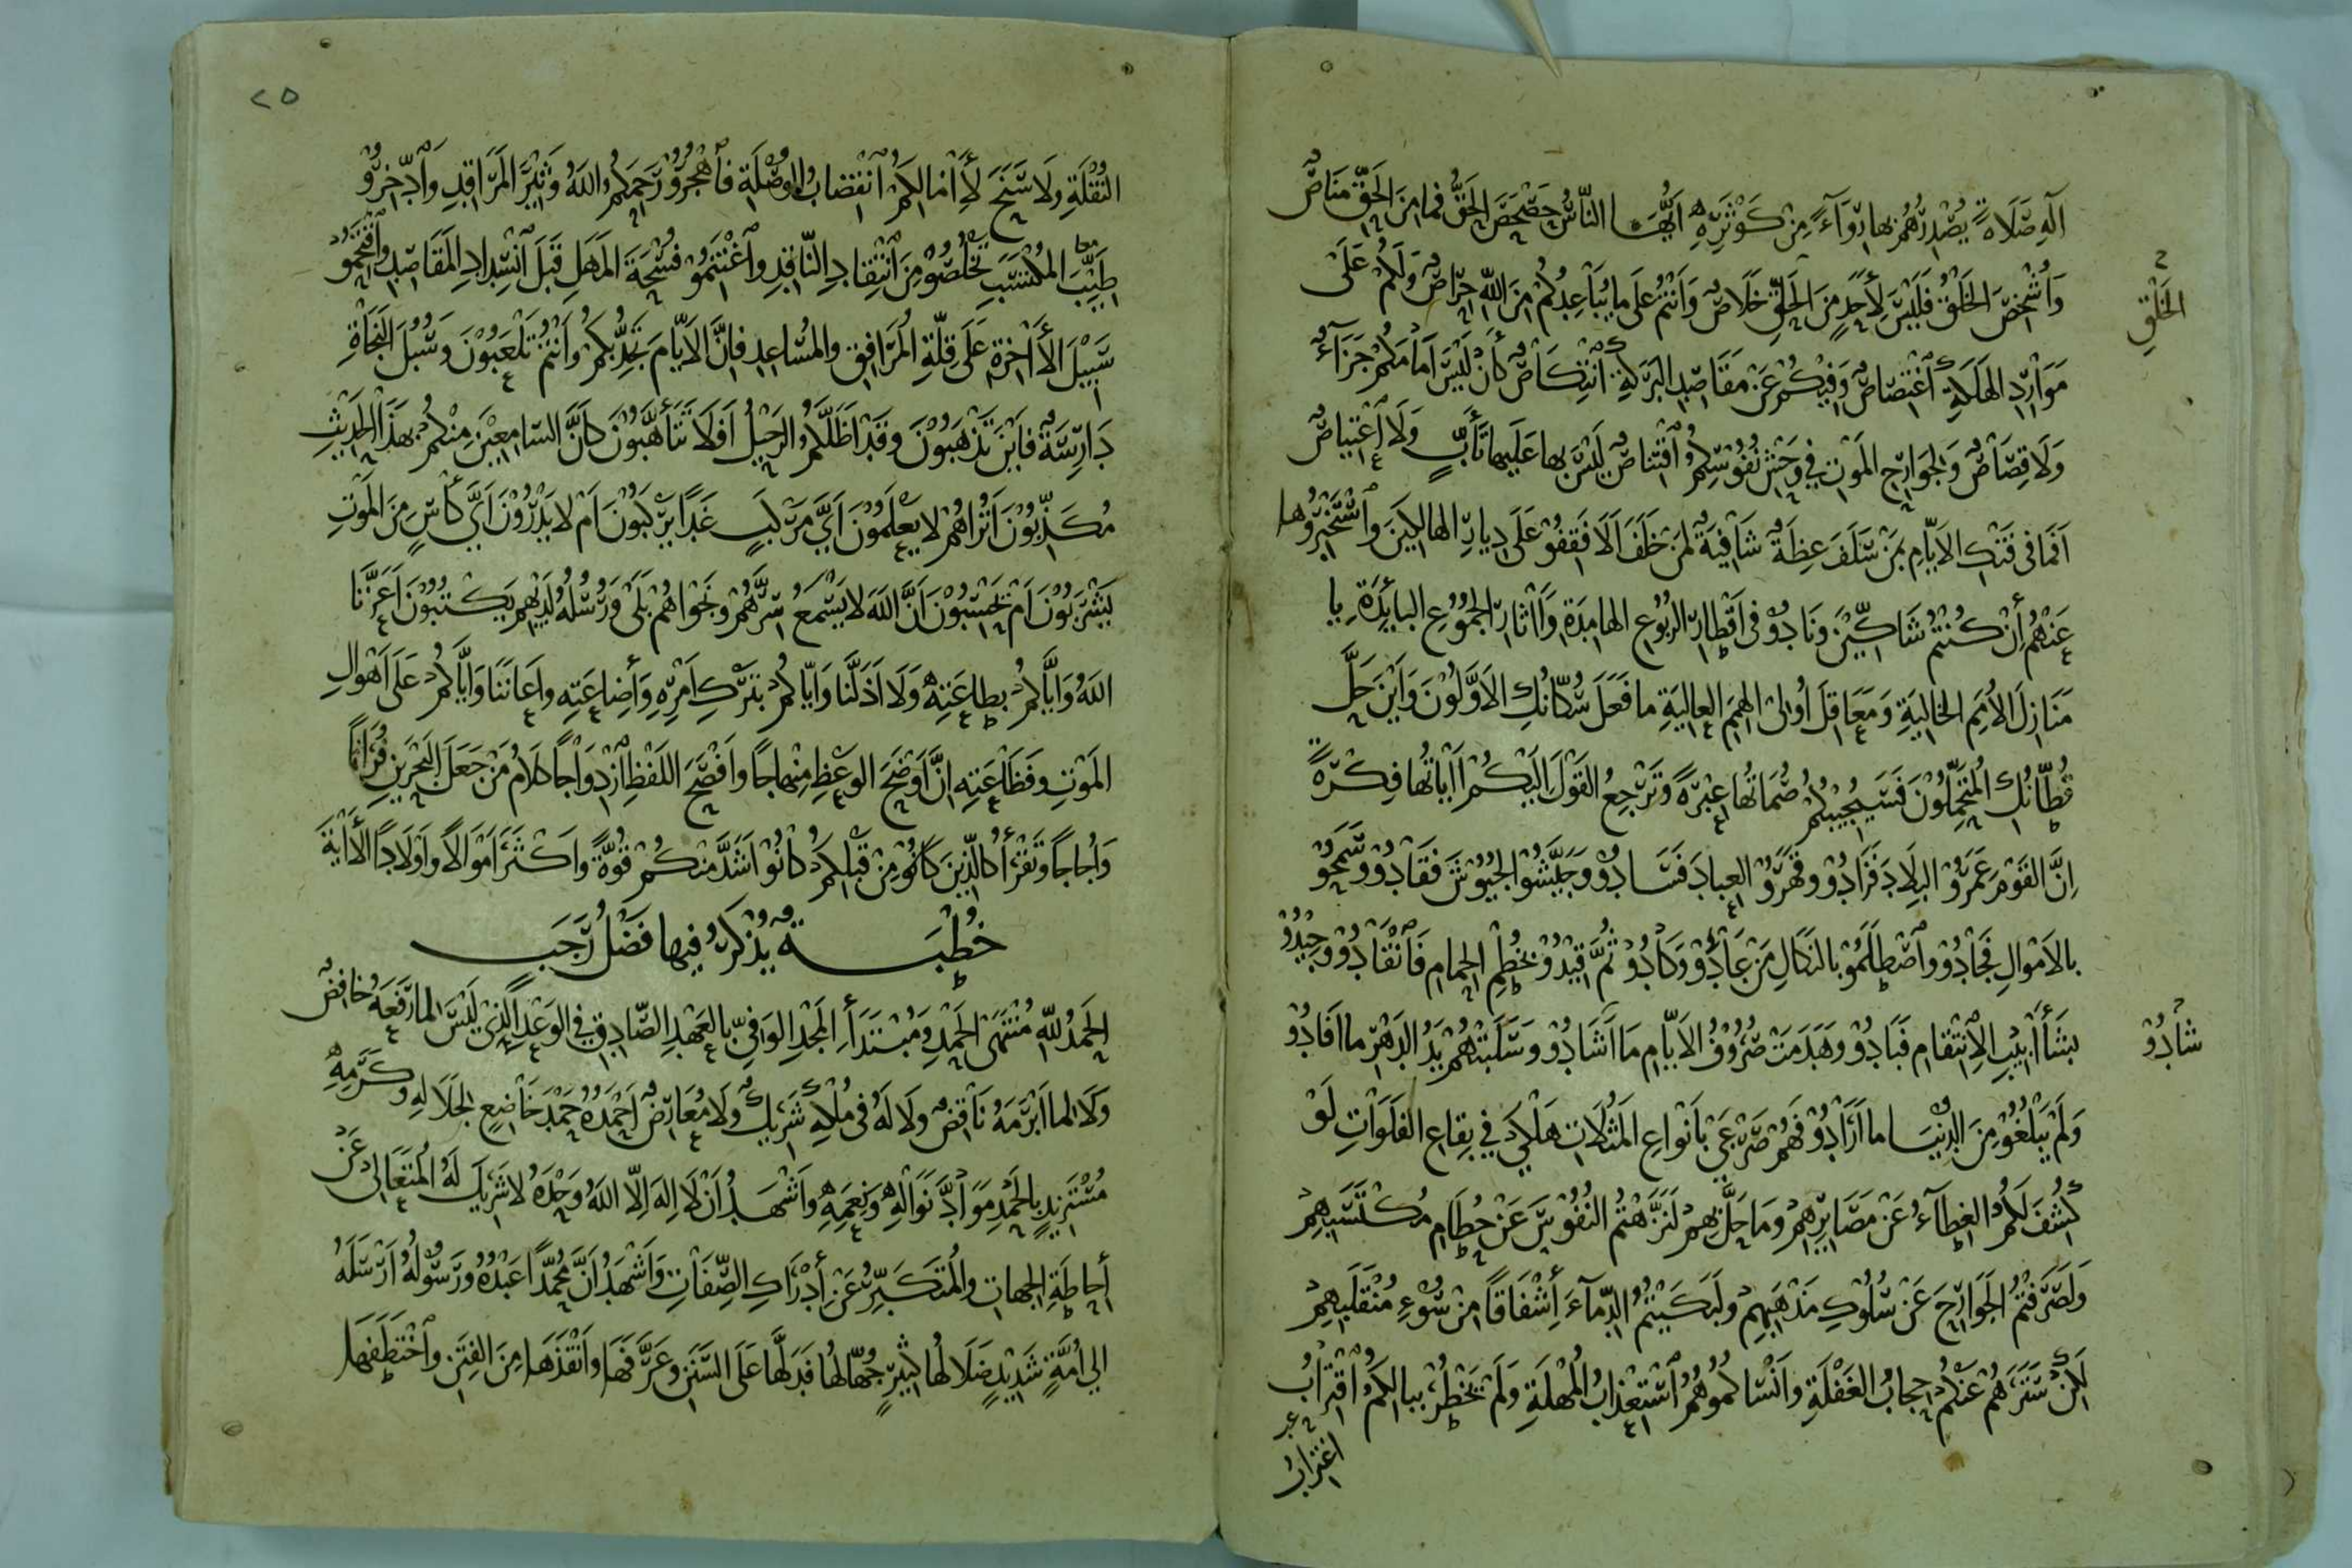 آلِهِ صَلَاةً يُصْدِرُهُمْ بِهَا رِوَآءً مِنْ كَوْثَرِهِ اَيُّهَا النَّاسُ حَصْحَصَ الْحَقُّ فَمَا مِنَ الْحَقِّ مَنَاصٌ
وَأُشْخِصَ الْخَلْقُ فَلَيْسَ لِأَحَدٍ مِنَ الْخَلْقِ خَلَاصٌ وَاَنْتُمْ عَلَى مَا يُبَاعِدُكُمْ مِنَ اللّٰهِ حِرَاصٌ وَلَكُمْ عَلَى
الْخَلْقِ
مَوَارِدِ الْهَلَكَةِ اغْتِصَاصٌ وَفِيكُمْ عَنْ مَقَاصِدِ الْبَرَكَةِ انْتِكَاصٌ كَأَنْ لَيْسَ اَمَامَكُمْ جَزَآءٌ
وَلَا قِصَاصٌ وَلِجَوَارِحِ الْمَوْتِ فِي وَحْشِ نُفُوسِكُمُ اقْتِنَاصٌ لَيْسَ بِهَا عَلَيْهَا تَأَبٍّ وَلَا اعْتِيَاصٌ
اَفَمَا فِي فَتْكِ الْاَيَّامِ بِمَنْ سَلَفَ عِظَةٌ شَافِيَةٌ لِمَنْ خَلَفَ اَلَا فَقِفُوْ عَلَى دِيَارِ الْهَالِكِينَ وَاسْتَخْبِرُوهَا
عَنْهُمْ اِنْ كُنْتُمْ شَاكِّينَ وَنَادُوْ فِي اَقْطَارِ الرُّبُوعِ الْهَامِدَةِ وَاٰثَارِ الْجُمُوعِ الْبَائِدَةِ يَا
مَنَازِلَ الْاُمَمِ الْخَالِيَةِ وَمَعَاقِلَ اُولِى الْهِمَمِ الْعَالِيَةِ مَا فَعَلَ سُكَّانُكِ الْاَوَّلُونَ وَاَيْنَ حَلَّ
قُطَّانُكِ الْمُتَحَمِّلُونَ فَسَيُجِيبُكُمْ صُمَاتُهَا عِبْرَةً وَتُرْجِعُ الْقَوْلَ اِلَيْكُمْ اٰيَاتُهَا فِكْرَةً
اِنَّ الْقَوْمَ عَمَرُوْ الْبِلَادَ فَزَادُوْ وَقَهَرُوْ الْعِبَادَ فَسَادُوْ وَجَيَّشُوْا الْجُيُوشَ فَقَادُوْ وَسَمَحُوْ
بِالْاَمْوَالِ فَجَادُوْ وَاصْطَلَمُوْ بِالنَّكَالِ مَنْ عَادَوْ وَكَادُوْ ثُمَّ قِيدُوْ بِخُطُمِ الْحِمَامِ فَانْقَادُوْ وَجِيدُوْ
بِشَآبِيبِ الْاِنْتِقَامِ فَبَادُوْ وَهَدَمَتْ صُرُوفُ الْاَيَّامِ مَا اَشَادُوْ وَسَلَبَتْهُمْ يَدُ الدَّهْرِ مَا اَفَادُوْ
شَادُوْ
وَلَمْ يَبْلُغُوْ مِنَ الدُّنْيَا مَا اَرَادُوْ فَهُمْ صَرْعَى بِاَنْوَاعِ الْمَثُلَاتِ هَلْكَى فِي بِقَاعِ الْفَلَوَاتِ لَوْ
كُشِفَ لَكُمُ الْغِطَآءُ عَنْ مَصَايِرِهِمْ وَمَا حَلَّ بِهِمْ لَنَزَّهْتُمُ النُّفُوسَ عَنْ حُطَامِ مُكْتَسَبِهِمْ
وَلَصَرَفْتُمُ الْجَوَارِحَ عَنْ سُلُوكِ مَذْهَبِهِمْ وَلَبَكَيْتُمُ الدِّمَآءَ اِشْفَاقًا مِنْ سُوْءِ مُنْقَلَبِهِمْ
لٰكِنْ سَتَرَهُمْ عَنْكُمْ حِجَابُ الْغَفْلَةِ وَاَنْسَاكُمُوهُمُ اسْتِعْذَابُ الْمُهْلَةِ وَلَمْ يَخْطُرْ بِبَالِكُمُ اقْتِرَابُ
اغْتِرَابُ
٢٥
النُّقْلَةِ وَلَا سَنَحَ لِاٰمَالِكُمُ انْقِضَابُ الْوُصْلَةِ فَاهْجُرُوْ رَحِمَكُمُ اللّٰهُ وَثِيرَ الْمَرَاقِدِ وَادَّخِرُوْ
طَيِّبَ الْمُكْتَسَبِ تَخْلُصُوْ مِنَ انْتِقَادِ النَّاقِدِ وَاغْتَنِمُوْ فُسْحَةَ الْمَهَلِ قَبْلَ انْسِدَادِ الْمَقَاصِدِ وَاقْتَحِمُوْ
سَبِيلَ الْاٰخِرَةِ عَلَى قِلَّةِ الْمُرَافِقِ وَالْمُسَاعِدِ فَاِنَّ الْاَيَّامَ تَجِدُّ بِكُمْ وَاَنْتُمْ تَلْعَبُونَ وَسُبُلَ النَّجَاةِ
دَارِسَةٌ فَاَيْنَ تَذْهَبُونَ وَقَدْ اَظَلَّكُمُ الرَّحِيلُ اَفَلَا تَتَأَهَّبُونَ كَاَنَّ السَّامِعِينَ مِنْكُمْ بِهٰذَا الْحَدِيثِ
مُكَذِّبُونَ اَتُرَاهُمْ لَا يَعْلَمُونَ اَيَّ مَرْكَبٍ غَدًا يَرْكَبُونَ اَمْ لَا يَدْرُونَ اَيَّ كَأْسٍ مِنَ الْمَوْتِ
يَشْرَبُونَ اَمْ يَحْسَبُونَ اَنَّ اللّٰهَ لَا يَسْمَعُ سِرَّهُمْ وَنَجْوَاهُمْ بَلَى وَرُسُلُهُ لَدَيْهِمْ يَكْتُبُونَ اَعَزَّنَا
اللّٰهُ وَاِيَّاكُمْ بِطَاعَتِهِ وَلَا اَذَلَّنَا وَاِيَّاكُمْ بِتَرْكِ اَمْرِهِ وَاِضَاعَتِهِ وَاَعَانَنَا وَاِيَّاكُمْ عَلَى اَهْوَالِ
الْمَوْتِ وَفَظَاعَتِهِ اِنَّ اَوْضَحَ الْوَعْظِ مِنْهَاجًا وَاَفْصَحَ اللَّفْظِ ازْدِوَاجًا كَلَامُ مَنْ جَعَلَ الْبَحْرَيْنِ فُرَاتًا
وَاُجَاجًا وَتَقْرَأُ كَالَّذِينَ كَانُوْ مِنْ قَبْلِكُمْ كَانُوْا اَشَدَّ مِنْكُمْ قُوَّةً وَاَكْثَرَ اَمْوَالًا وَاَوْلَادًا الْاٰيَةَ
خُطْبَةٌ يُذْكَرُ فِيهَا فَضْلُ رَجَبَ
الْحَمْدُ لِلّٰهِ مُنْتَهَى الْحَمْدِ وَمُبْتَدَأِ الْمَجْدِ الْوَافِي بِالْعَهْدِ الصَّادِقِ فِي الْوَعْدِ الَّذِي لَيْسَ لِمَا رَفَعَهُ خَافِضٌ
وَلَا لِمَا اَبْرَمَهُ نَاقِضٌ وَلَا لَهُ فِي مُلْكِهِ شَرِيكٌ وَلَا مُعَارِضٌ اَحْمَدُهُ حَمْدَ خَاضِعٍ لِجَلَالِهِ وَكَرَمِهِ
مُسْتَزِيدٍ بِالْحَمْدِ مَوَادَّ نَوَالِهِ وَنِعَمِهِ وَاَشْهَدُ اَنْ لَا اِلٰهَ اِلَّا اللّٰهُ وَحْدَهُ لَا شَرِيكَ لَهُ الْمُتَعَالِى عَنْ
اِحَاطَةِ الْجِهَاتِ وَالْمُتَكَبِّرُ عَنْ اِدْرَاكِ الصِّفَاتِ وَاَشْهَدُ اَنَّ مُحَمَّدًا عَبْدُهُ وَرَسُولُهُ اَرْسَلَهُ
اِلَى اُمَّةٍ شَدِيدٍ ضَلَالُهَا كَثِيرٍ جُهَّالُهَا فَدَلَّهَا عَلَى السَّنَنِ وَعَرَّفَهَا وَاَنْقَذَهَا مِنَ الْفِتَنِ وَاخْتَطَفَهَا